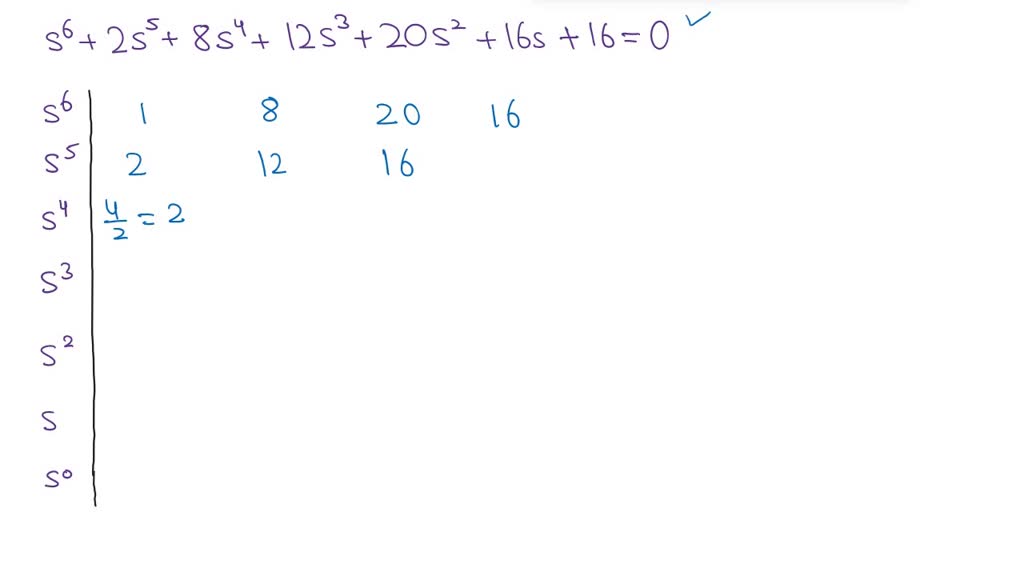 s⁶ + 2s⁵ + 8s⁴ + 12s³ + 20s² + 16s + 16 = 0 ✓
s⁶ | 1 8 20 16
s⁵ | 2 12 16
s⁴ | 4/2 = 2
s³ |
s² |
s |
s⁰ |